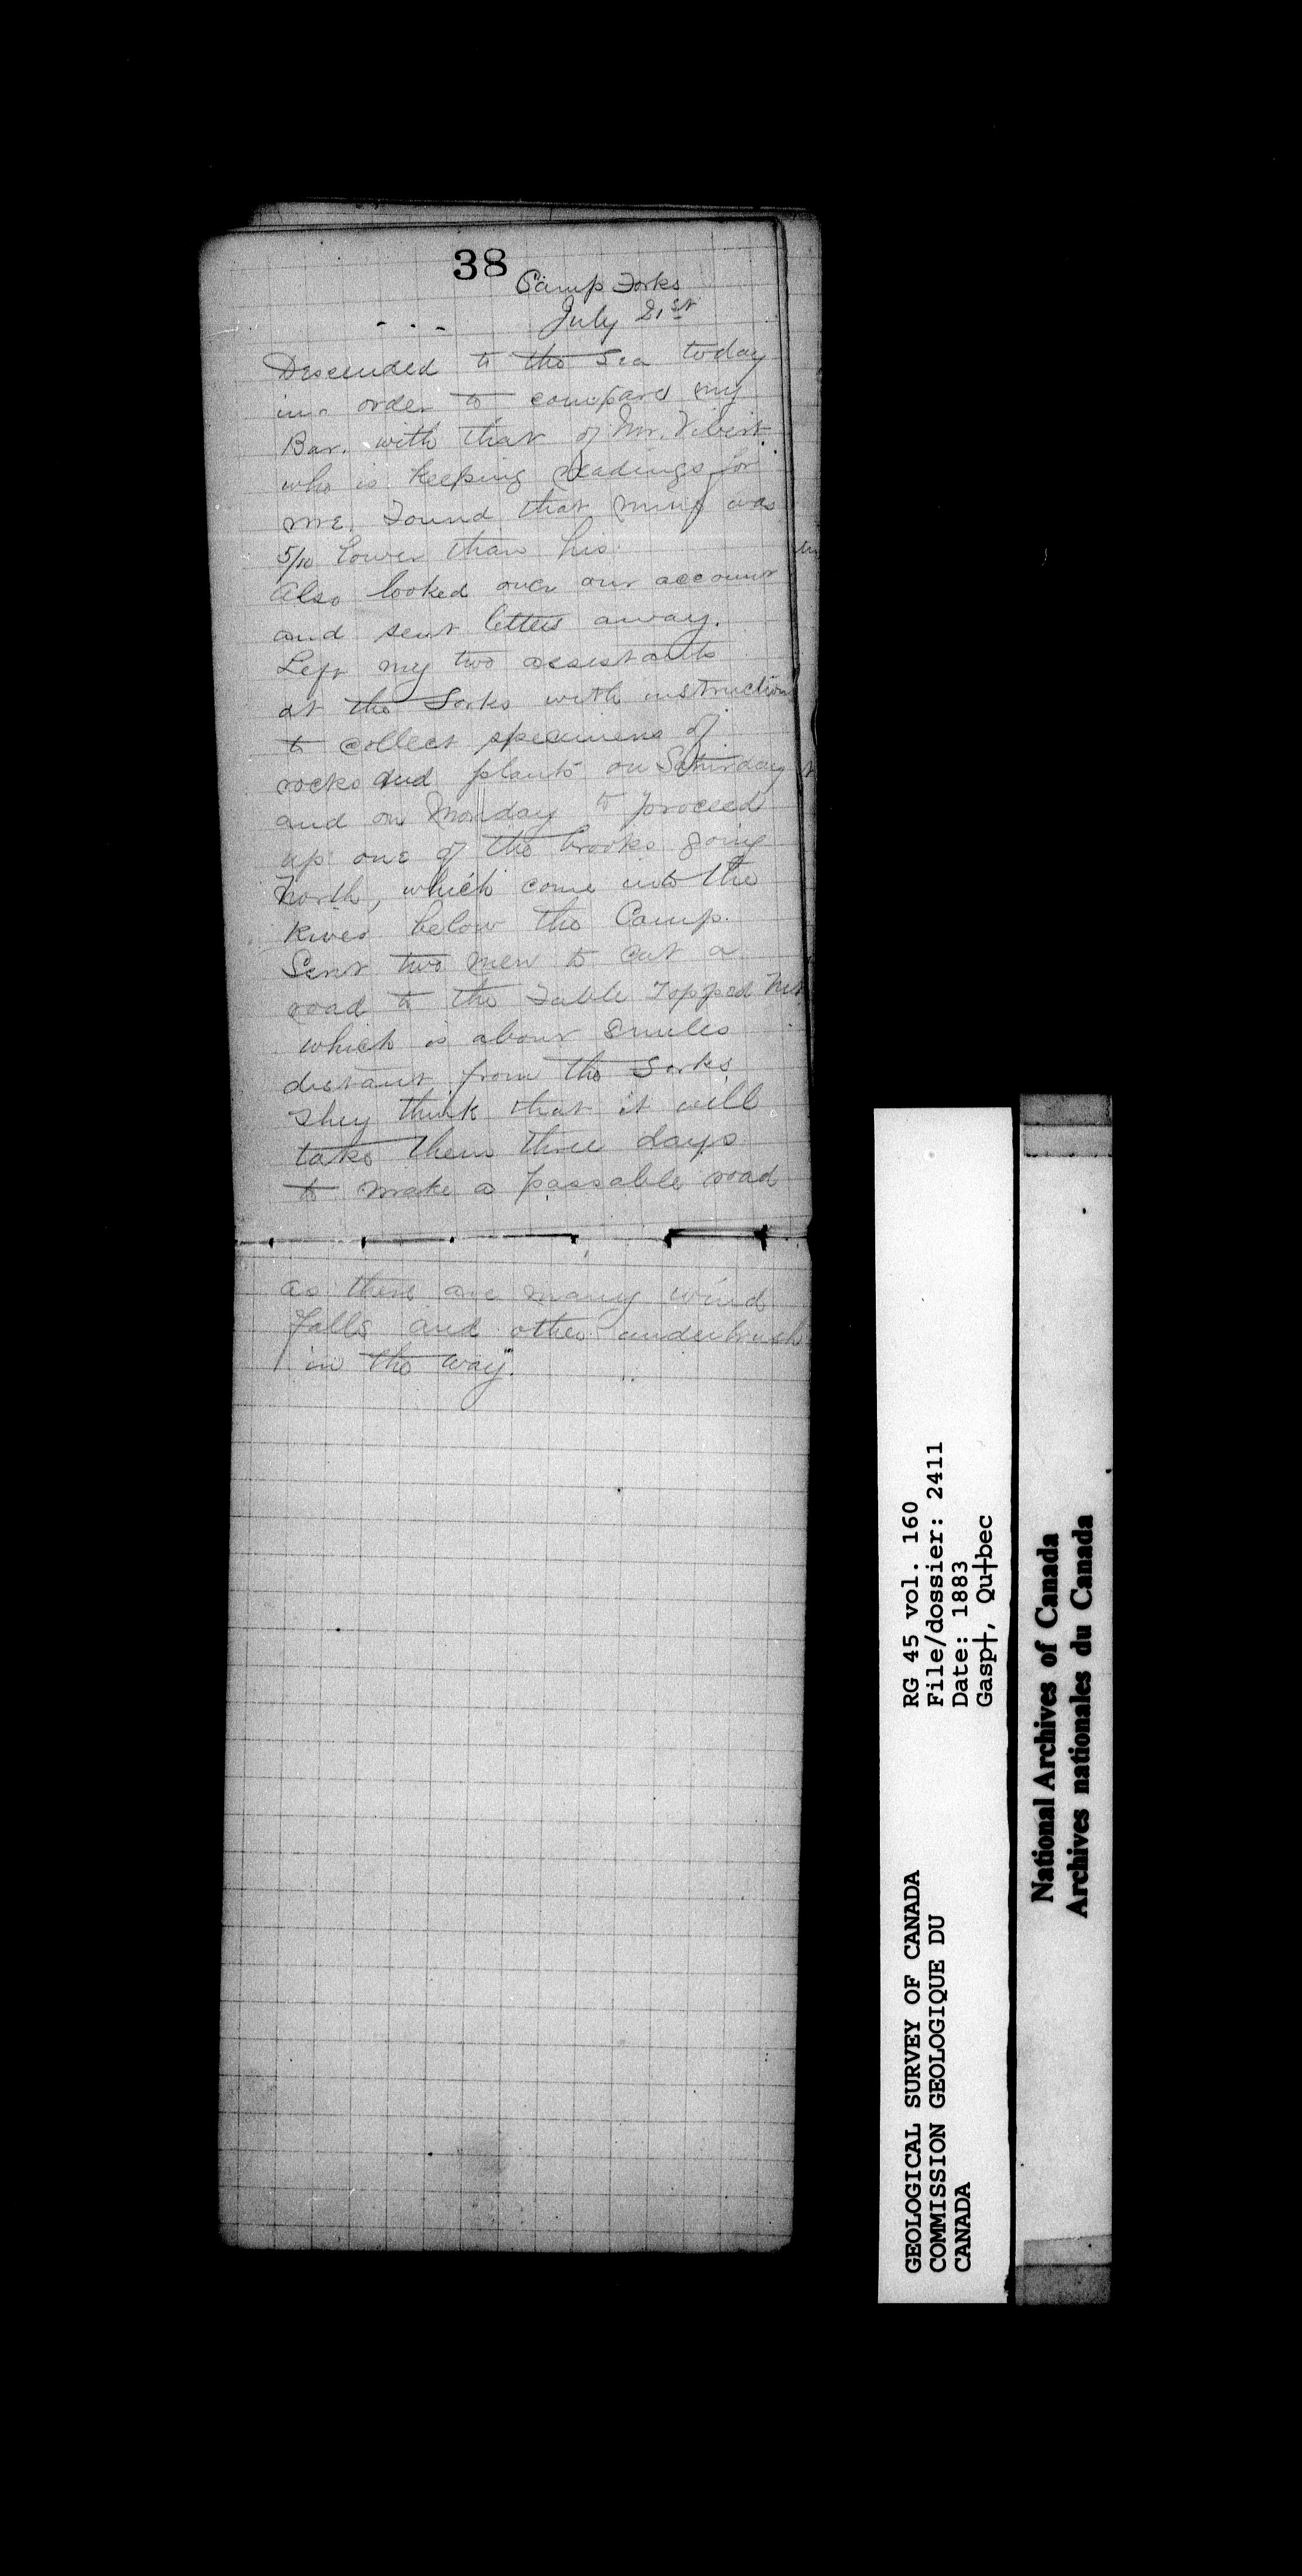 38
Camp Forks
July 21st
Descended to the Sea today
in order to compare my
Bar. with that of Mr. Vibert
who is keeping readings for
me. Found that mine was
5/10 lower than his
Also looked over our account
and sent letters away.
Left my two assistants
at the Forks with instructions
to collect specimens of
rocks and plants on Saturday
and on Monday to proceed
up one of the brooks going
North, which come into the
River below the Camp.
Sent two men to cut a
road to the Table Topped Mt
which is about 8 miles
distant from the Forks
They think that it will
take them three days
to make a passable road
as there are many wind
falls and other underbrush
in the way.
RG 45 vol. 160
File/dossier: 2411
Date: 1883
Gasp┼, Qu┼bec
GEOLOGICAL SURVEY OF CANADA
COMMISSION GEOLOGIQUE DU
CANADA
National Archives of Canada
Archives nationales du Canada